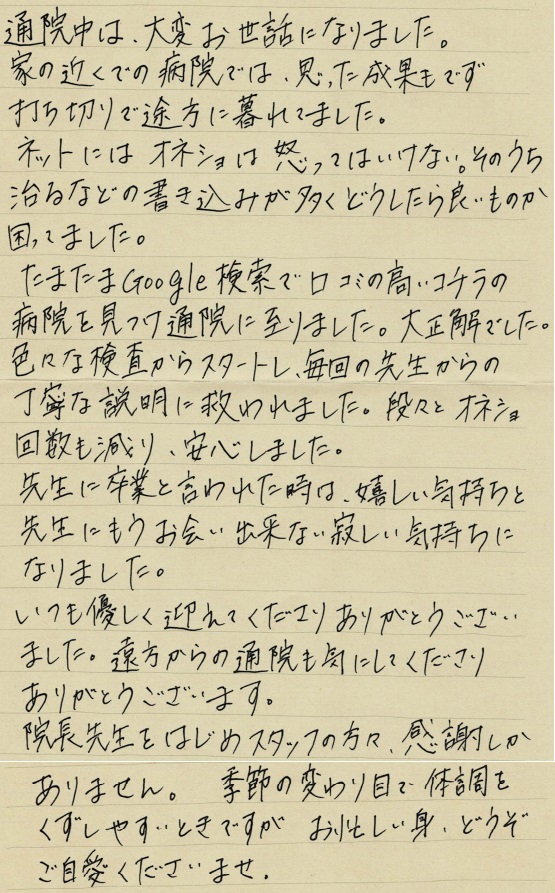 通院中は、大変お世話になりました。
家の近くでの病院では、思った成果もでず
打ち切りで途方に暮れてました。
ネットにはオネショは怒ってはいけない。そのうち
治るなどの書き込みが多くどうしたら良いものか
困ってました。
たまたまGoogle検索で口コミの高いコチラの
病院を見つけ通院に至りました。大正解でした。
色々な検査からスタートし、毎回の先生からの
丁寧な説明に救われました。段々とオネショ
回数も減り、安心しました。
先生に卒業と言われた時は、嬉しい気持ちと
先生にもうお会い出来ない寂しい気持ちに
なりました。
いつも優しく迎えてくださりありがとうござい
ました。遠方からの通院も気にしてくださり
ありがとうございます。
院長先生をはじめスタッフの方々、感謝しか
ありません。 季節の変わり目で体調を
くずしやすいときですが お忙しい身、どうぞ
ご自愛くださいませ。